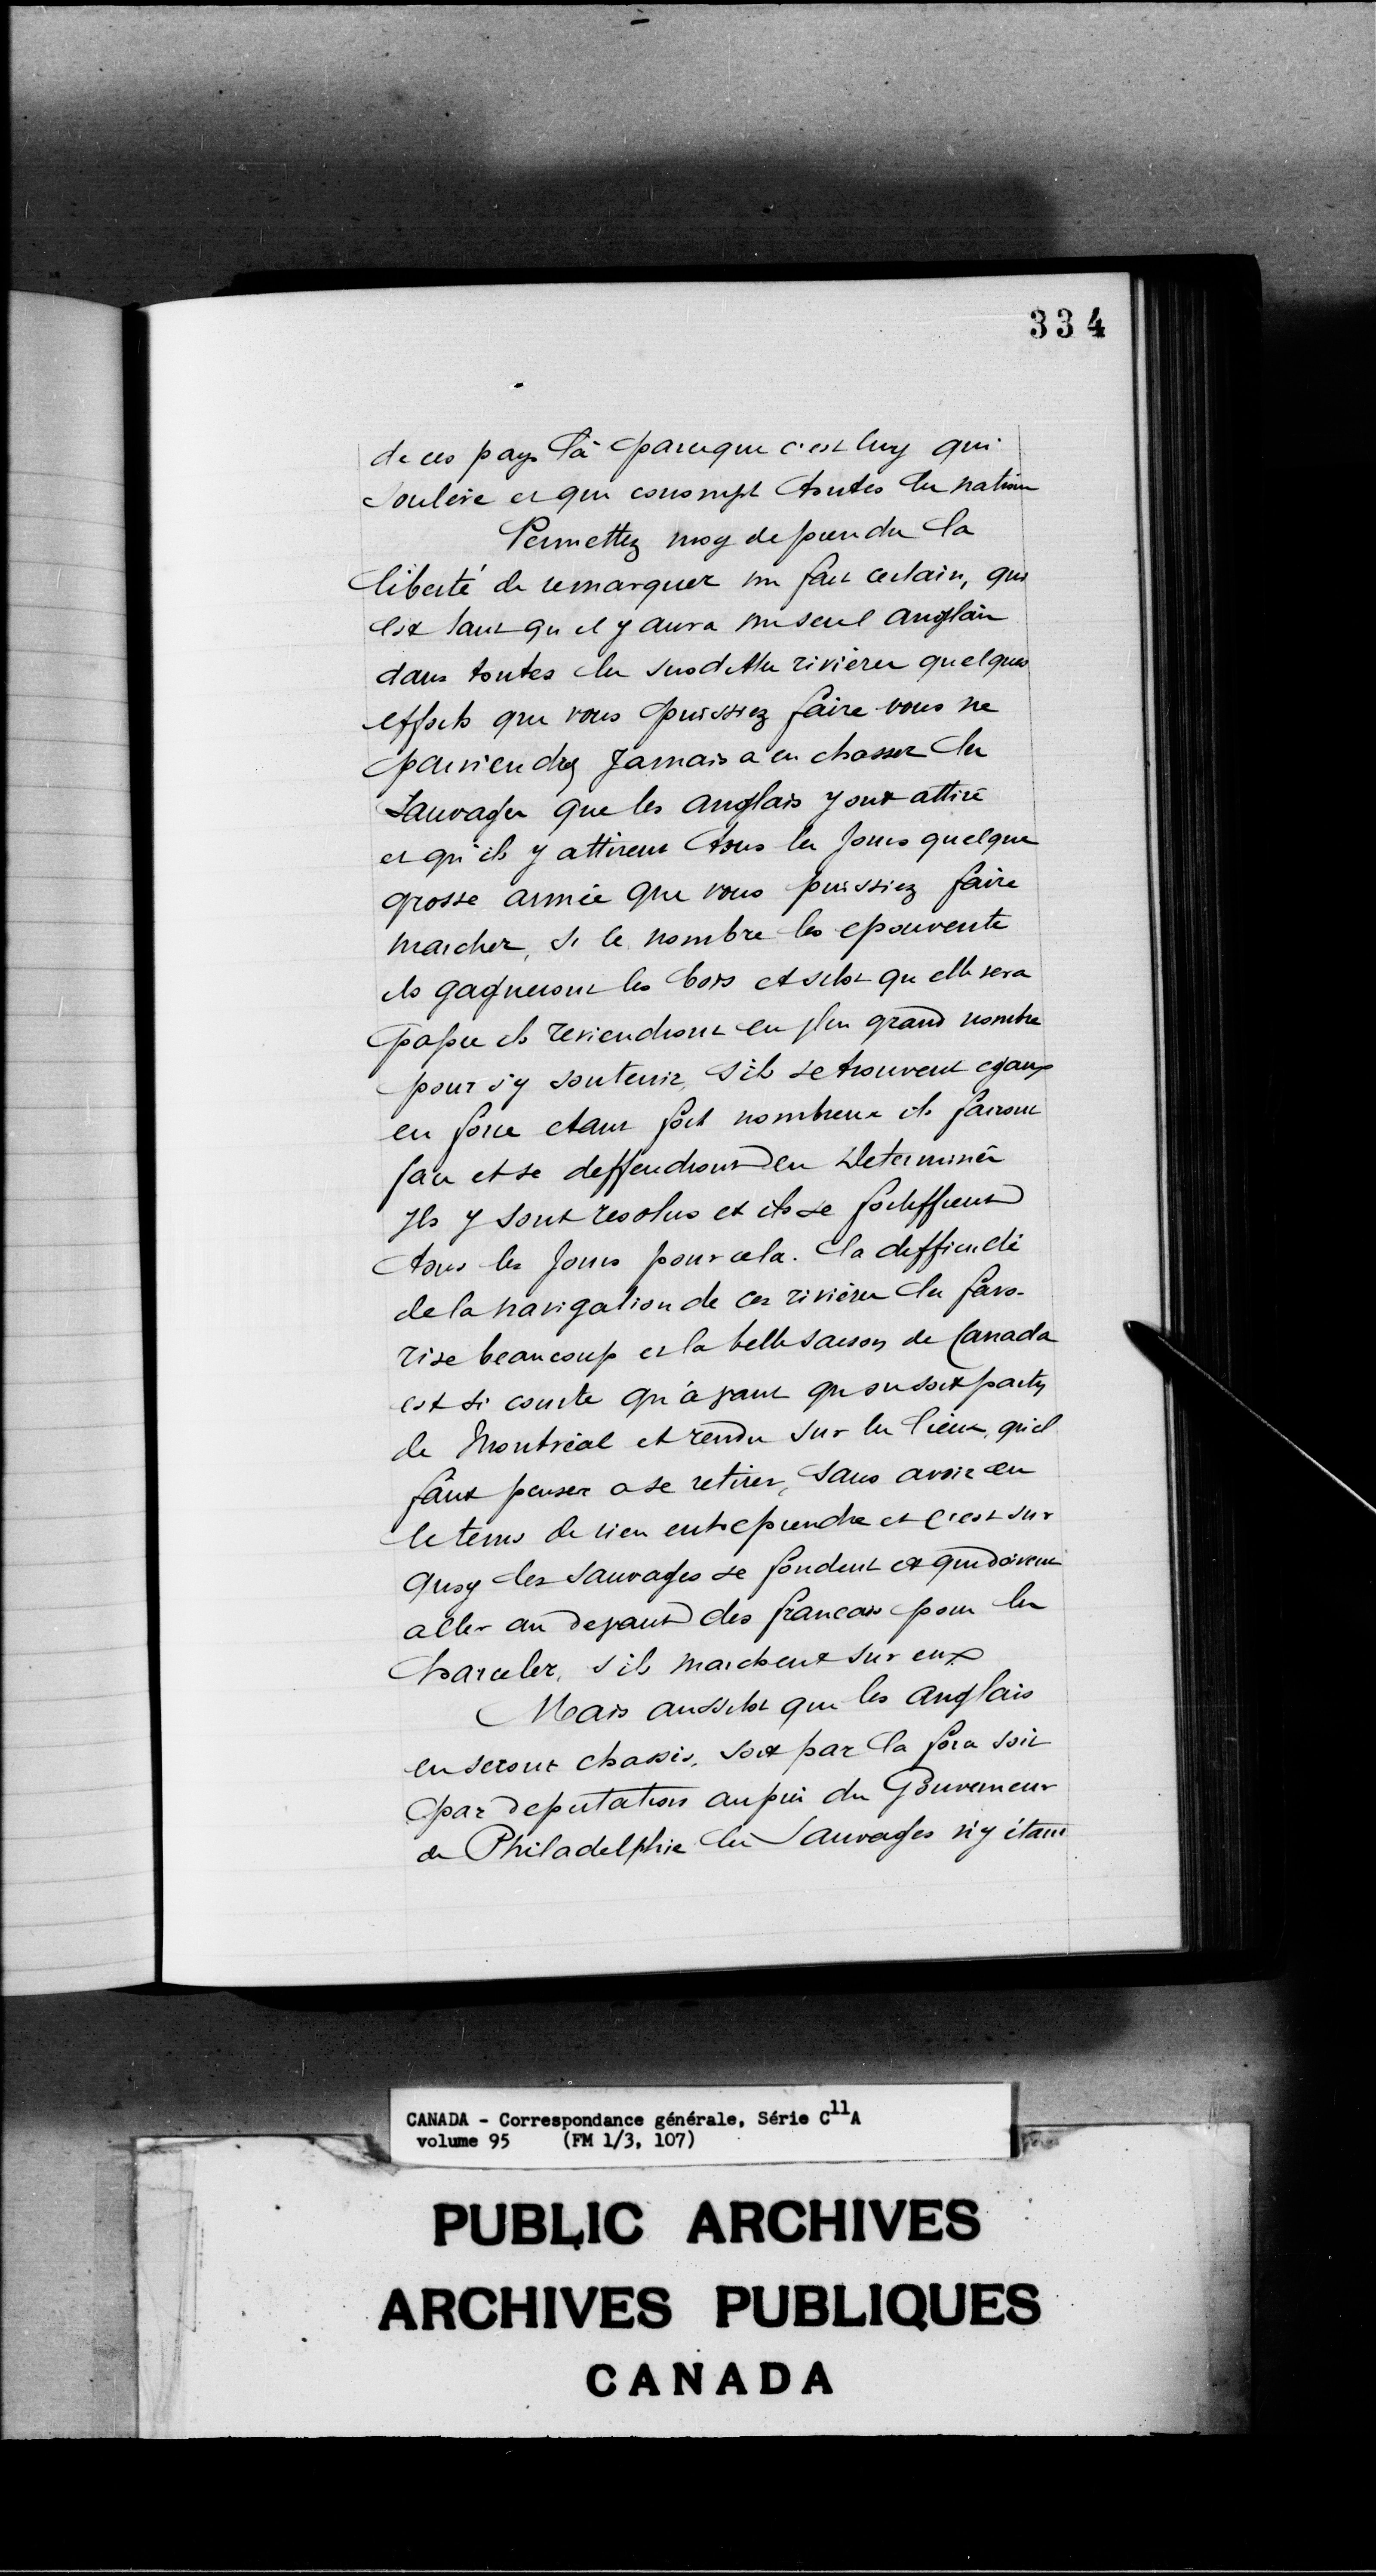 334
de ces pays là parceque c'est luy qui
souleve et qui corrompt toutes les nations
Permettez moy de prendre la
liberté de remarquer un fait certain, qui
est tant qu il y aura un seul anglais
dans toutes les susdittes rivieres quelques
efforts que vous puissiez faire vous ne
parviendrez jamais a en chasser les
Sauvages que les anglais y ont attiré
et qu'ils y attirent tous les jours quelque
grosse armée que vous puissiez faire
marcher, si le nombre les epouvente
ils gagneront les bois et sitot qu elle sera
passée ils reviendront en plus grand nombre
pour s'y soutenir, s'ils se trouvent egaux
en force etant fort nombreux ils fairont
face et se deffendront en determinés
Ils y sont resolus et ils se fortiffient
tous les jours pour cela. La difficulté
de la navigation de ces rivieres les favo-
rise beaucoup et la belle saison de Canada
est si courte qu'avant qu on soit party
de Montréal et rendu sur les lieux, qu'il
faut penser a se retirer, sans avoir eu
le tems de rien entreprendre et c'est sur
quoy les sauvages se fondent et qui doivent
aller au devant des francais pour les
harceler, s'ils marchent sur eux
Mais aussitot que les anglais
en seront chassés, soit par la force soit
par deputation auprès du Gouverneur
de Philadelphie les Sauvages n'y étant
CANADA - Correspondance générale, Série C11A
volume 95 (FM 1/3, 107)
PUBLIC ARCHIVES
ARCHIVES PUBLIQUES
CANADA